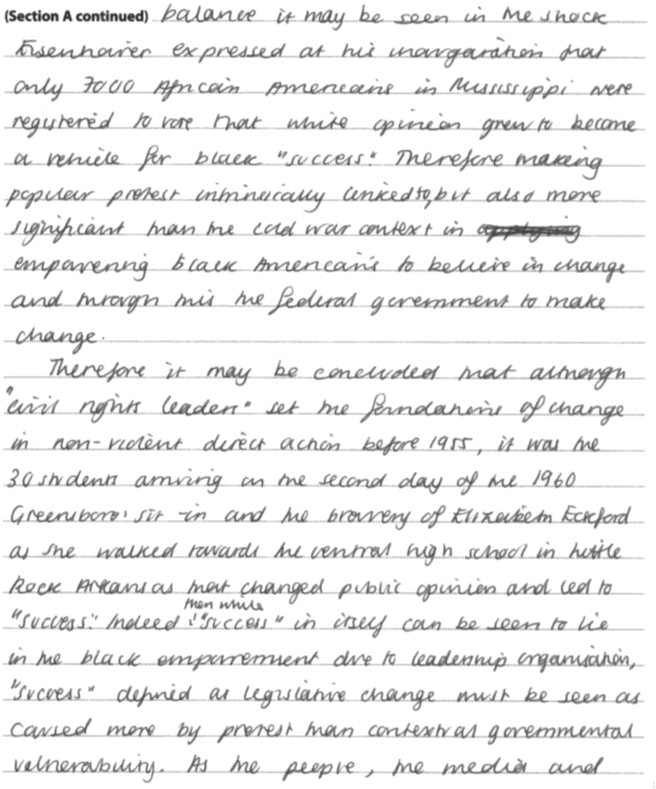 (Section A continued) balance it may be seen in the shock
Eisenhower expressed at his inauguration that
only 7000 African Americans in Mississippi were
registered to vote that white opinion grew to become
a vehicle for black "success". Therefore making
popular protest intrinsically linked to, but also more
significant than the cold war context in applying
empowering black Americans to believe in change
and through this the federal government to make
change.
Therefore it may be concluded that although
"civil rights leaders" set the foundations of change
in non-violent direct action before 1955, it was the
30 students arriving on the second day of the 1960
Greensboro' sit-in and the bravery of Elizabeth Eckford
as she walked towards the central high school in little
Rock Arkansas that changed public opinion and led to
"success". Indeed then while "success" in itself can be seen to lie
in the black empowerment due to leadership organisation,
"success" defined as legislative change must be seen as
caused more by protest than contextual governmental
vulnerability. As the people, the media and